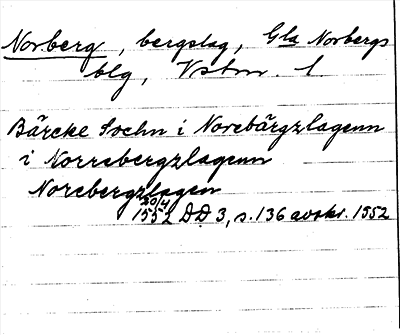 Norberg, bergslag, Gla Norbergs
blg, Vstm. l
Bärcke Sochn i Norebärgzlagenn
i Norrebergzlagenn
Norebergzlagen
20/4
1552 DD 3, s. 136 avskr. 1552